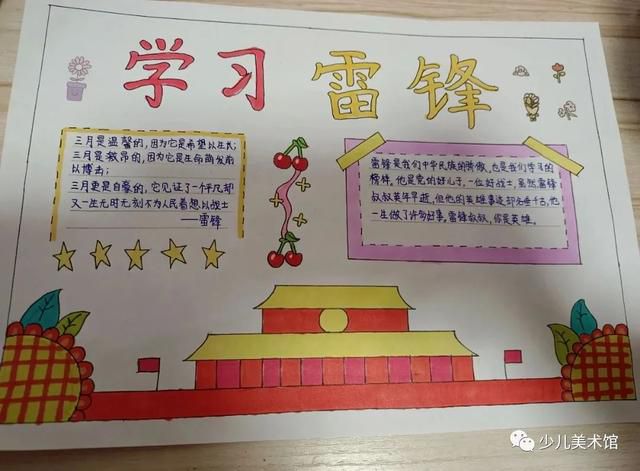 学习 雷锋
三月是温馨的,因为它是希望以生长;
三月是激昂的,因为它是生命萌发前
以搏击;
三月更是自豪的,它见证了一个平凡却
又一生无时无刻不为人民着想以战士
——雷锋
雷锋是我们中华民族的骄傲,也是我们学习的
榜样。他是党的好儿子,一位好战士,虽然雷锋
叔叔英年早逝,但他的英雄事迹却名垂千古,他
一生做了许多好事。雷锋叔叔,你是英雄。
少儿美术馆